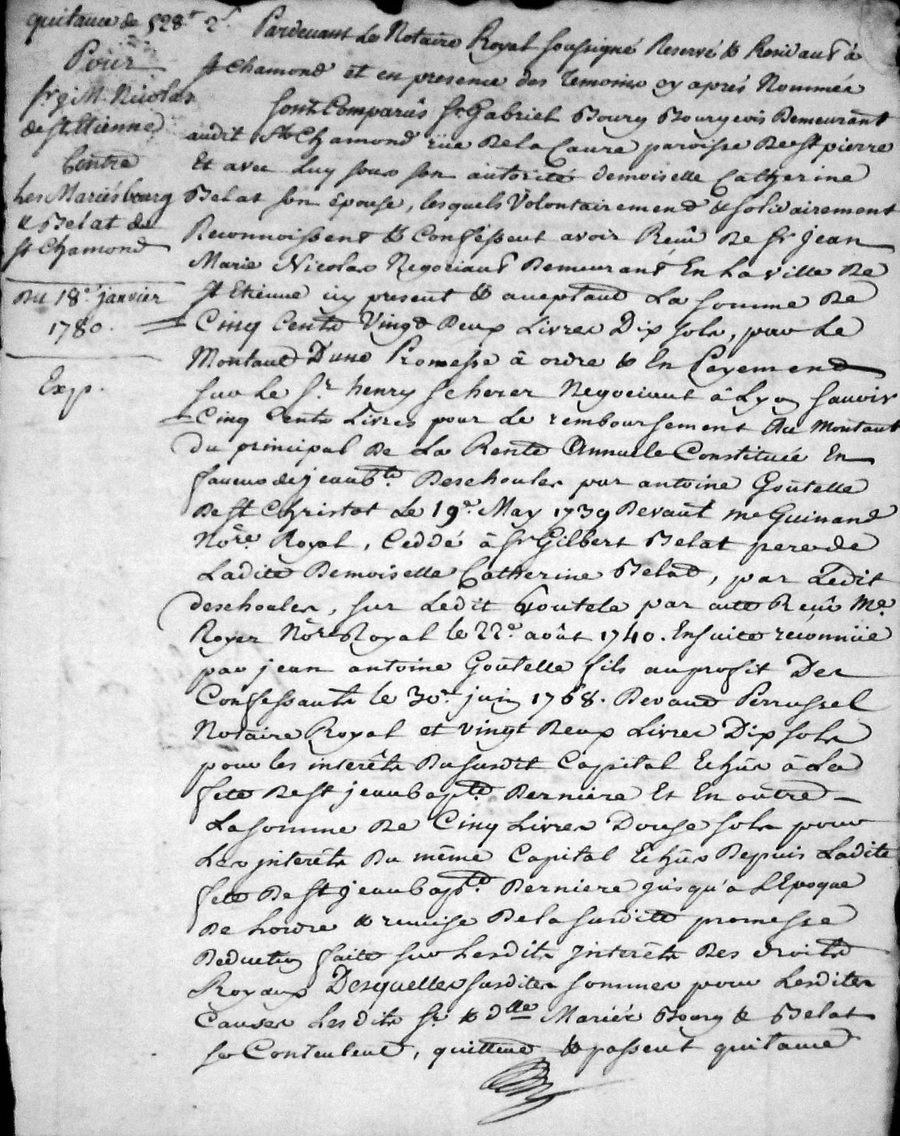 quitance de 528ᵗ 2ˢ
Pour
sʳ j. M. Nicolas
de st Etienne
Contre
Les Mariés bourg
& Belat de
st Chamond
Du 18ᵉ janvier
1780.
Exp.
Pardevant Le Notaire Royal soussigné Reservé & Residant à
st Chamond et en presence des Temoins cy aprés Nommés
sont Comparûs sʳ Gabriel Bourg Bourgeois Demeurant
audit st Chamond rüe De la Caure paroisse De st pierre
Et avec Luy sous son autorité demoiselle Catherine
Belat son Epouse, lesquels Volontairement & solidairement
Reconnoissent & Confessent avoir Reçû De sʳ jean
Marie Nicolas Negociant Demeurant En La ville De
st Etienne icy present & acceptant La somme De
Cinq Cents Vingt Deux Livres Dix sols, par Le
Montant D'une Promesse à ordre & En Payement
sur Le sʳ henry scherer Negociant à Lyon sauoir
Cinq Cents Livres pour Le remboursement Du Montant
du principal De La Rente Annuelle Constituée En
faveur de jean bᵗᵉ Deschoules par antoine Goutelle
De st Christot Le 19ᵉ May 1739 Devant mᵉ Guinand
Noʳᵉ Royal, Ceddé à sʳ Gilbert Belat pere de
Ladite Demoiselle Catherine Belat, par Ledit
deschoules, sur Ledit Goutele par acte Reçû Mᵉ
Royer Noʳᵉ Royal le 22ᵉ août 1740. Ensuite reconnüe
par jean antoine Goutelle fils au profit Des
Confessants le 30ᵉ juin 1768. Devant Perrussel
Notaire Royal et vingt Deux Livres Dix sols
pour les interêts Du susdit Capital Echûs à La
fête De st jean bapᵗᵉ Derniere Et En outre
La somme De Cinq Livres Douse sols pour
Les interêts Du même Capital Echûs Depuis Ladite
fête De st jean bapᵗᵉ Derniere jusqu'a L'Epoque
De L'ordre & remise De la susditte promesse
Deduction faite sur Lesdits interêts Des droits
Royaux Desquelles susdites sommes pour Lesdites
Causes Lesdits sʳ & dˡˡᵉ Mariés Bourg & Belat
se Contentent, quittent & passent quitance